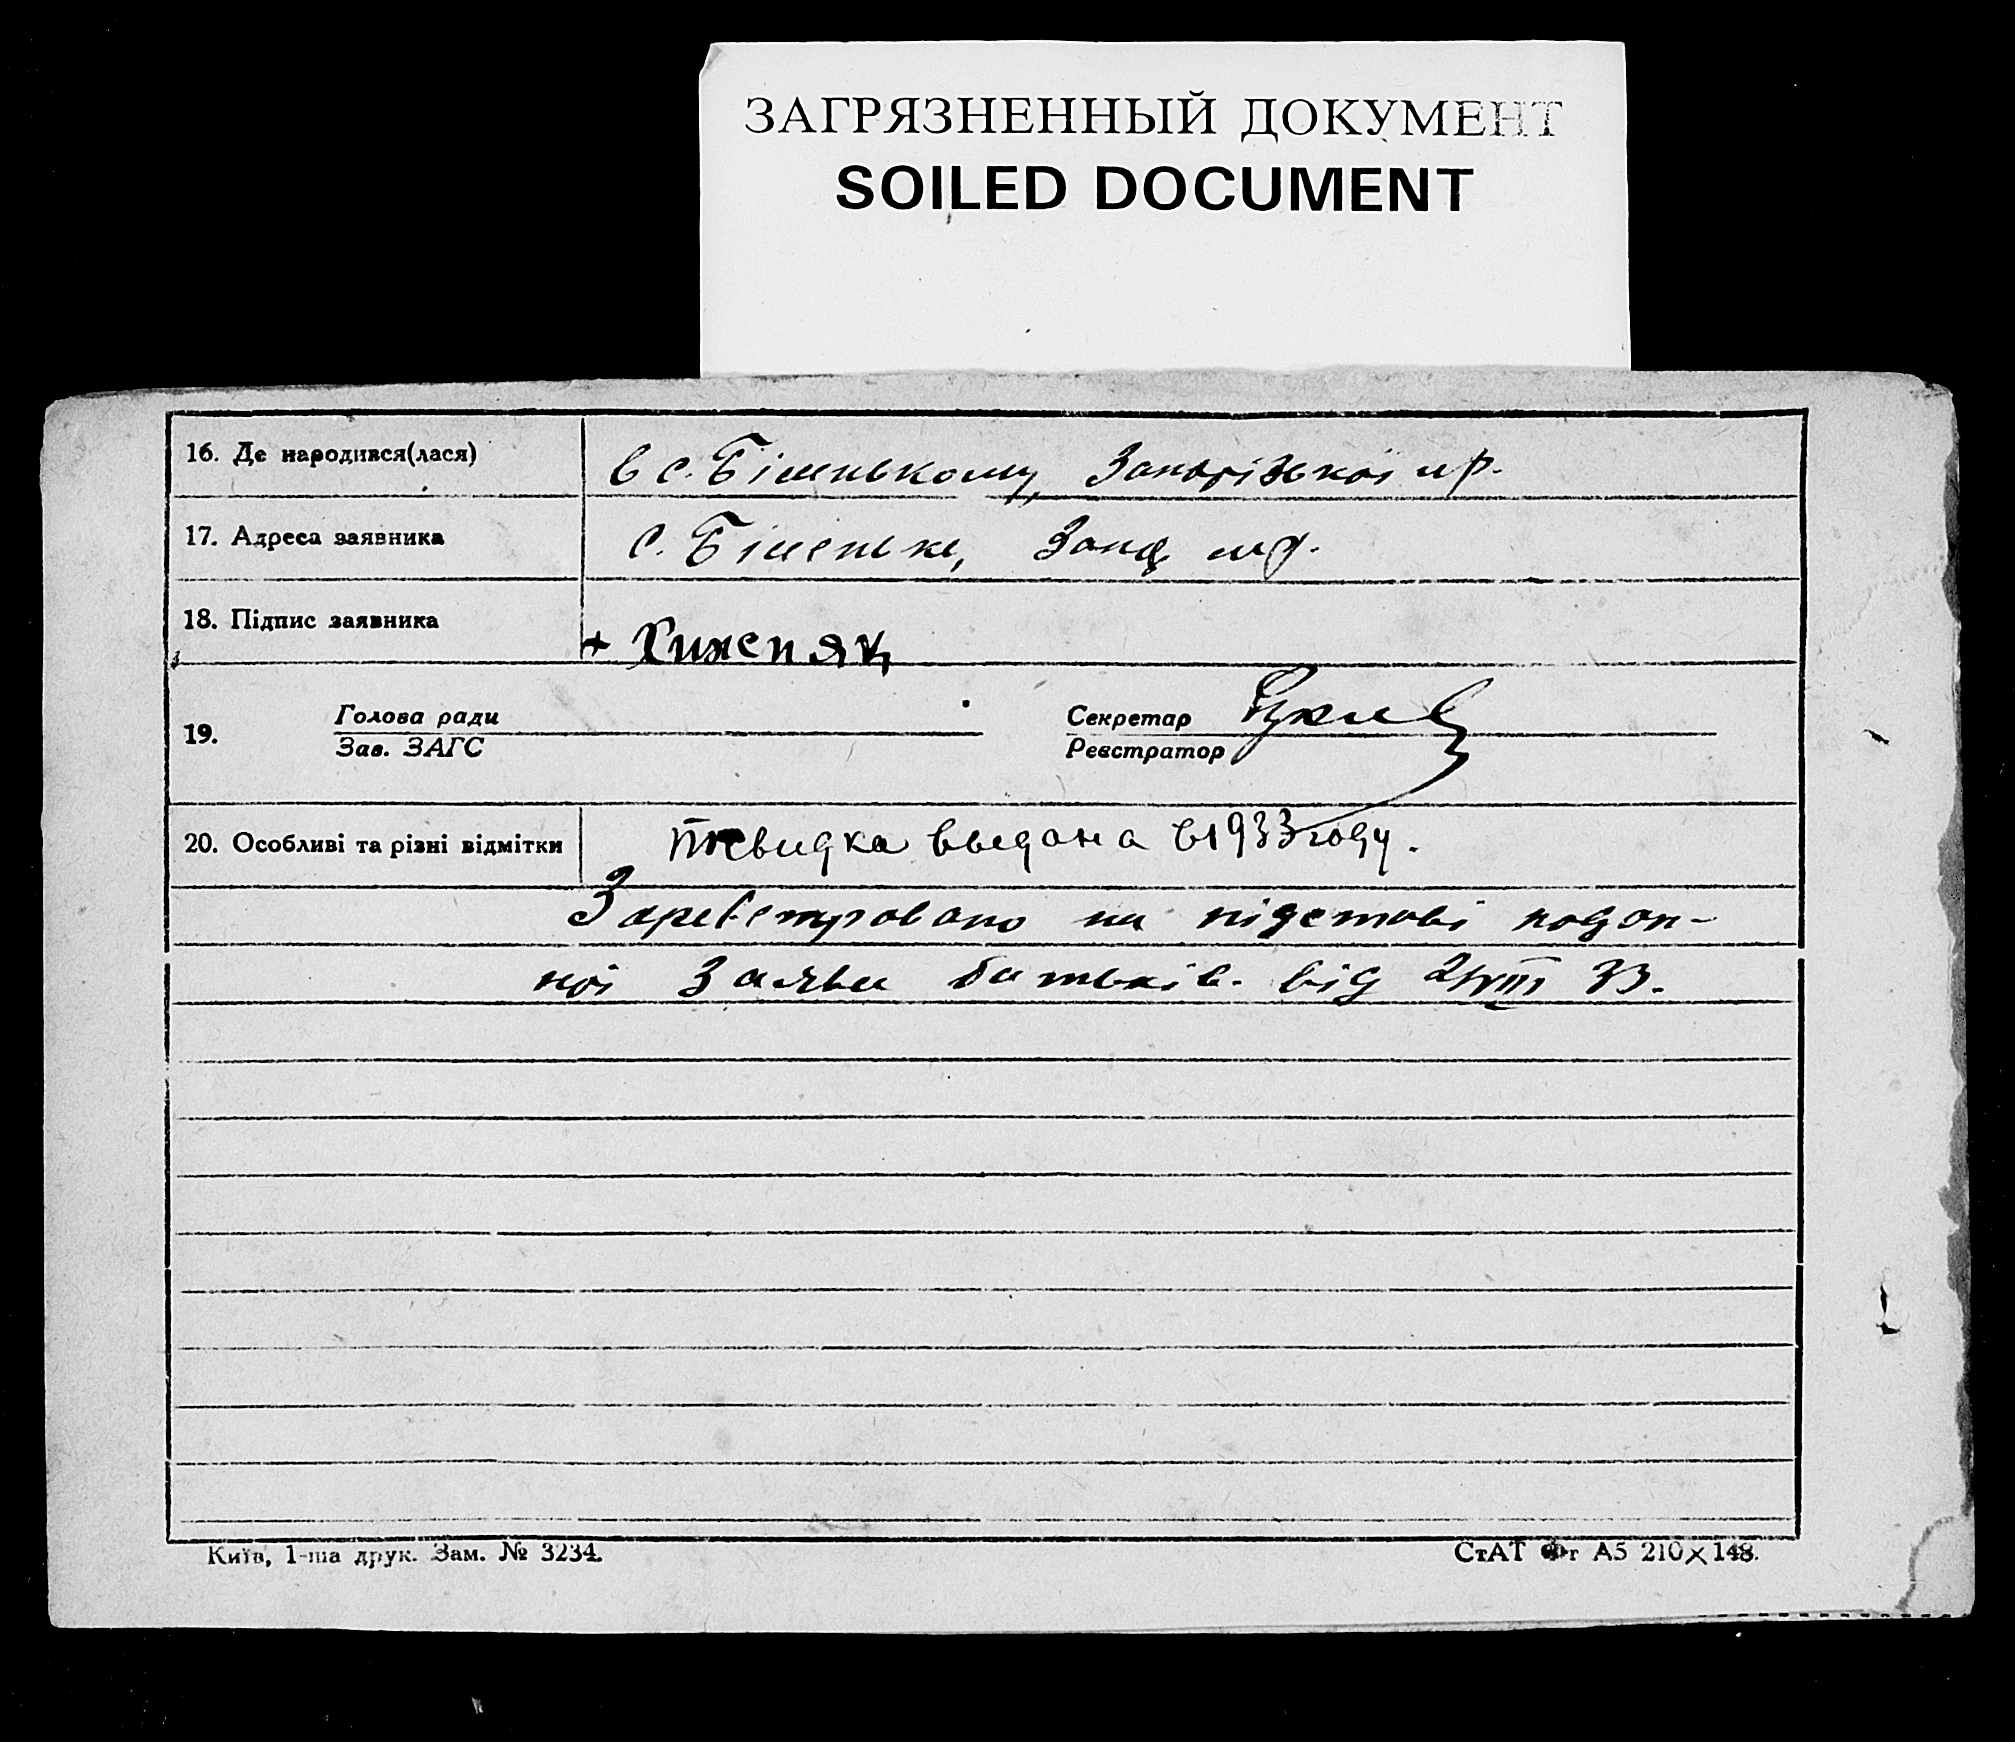 ЗАГРЯЗНЕННЫЙ ДОКУМЕНТ
SOILED DOCUMENT
16. Де народився(лася) в с. Біленькому, Запорізької мр.
17. Адреса заявника с. Біленьке, Запор мр.
18. Підпис заявника + Хиженяк
19. Голова ради Секретар
Зав. ЗАГС Реєстратор
20. Особливі та різні відмітки посвидка выдана в 1933 году.
Зареєстровано на підставі подан-
ної заяви батьків. від VIII 33.
Київ, 1-ша друк. Зам. № 3234.
СтАТ Фт А5 210×148.